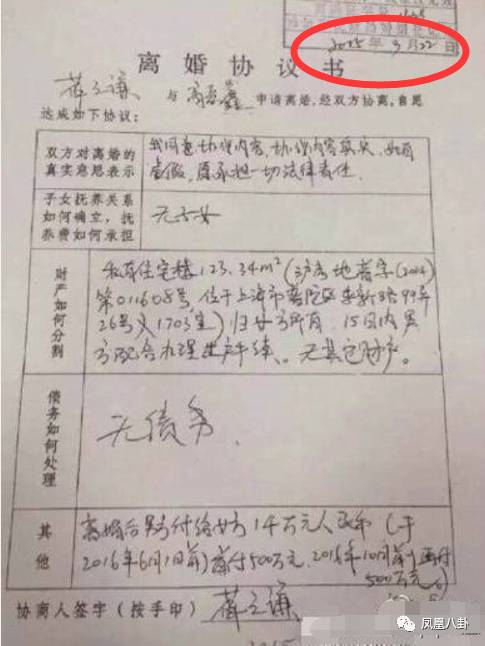 2015年9月22日
离婚协议书
薛之谦 与 高磊鑫 申请离婚,经双方协商,自愿
达成如下协议:
双方对离婚的
真实意思表示
我同意协议内容,协议内容真实,如有
虚假,愿承担一切法律责任.
子女抚养关系
如何确立,抚
养费如何承担
无子女
财产如何分割
私有住宅楼123.34m²(沪房地普字(2014)
第011608号,位于上海市普陀区
26号 1703室)归女方所有,15日内男
方配合办理过户手续。无其它财产。
债务如何处理
无债务.
其他
离婚后男方付给女方1千万元人民币(于
2016年6月1日前)首付500万元,2016年10月前再付
500万元
协离人签字(按手印)
薛之谦
凤凰八卦